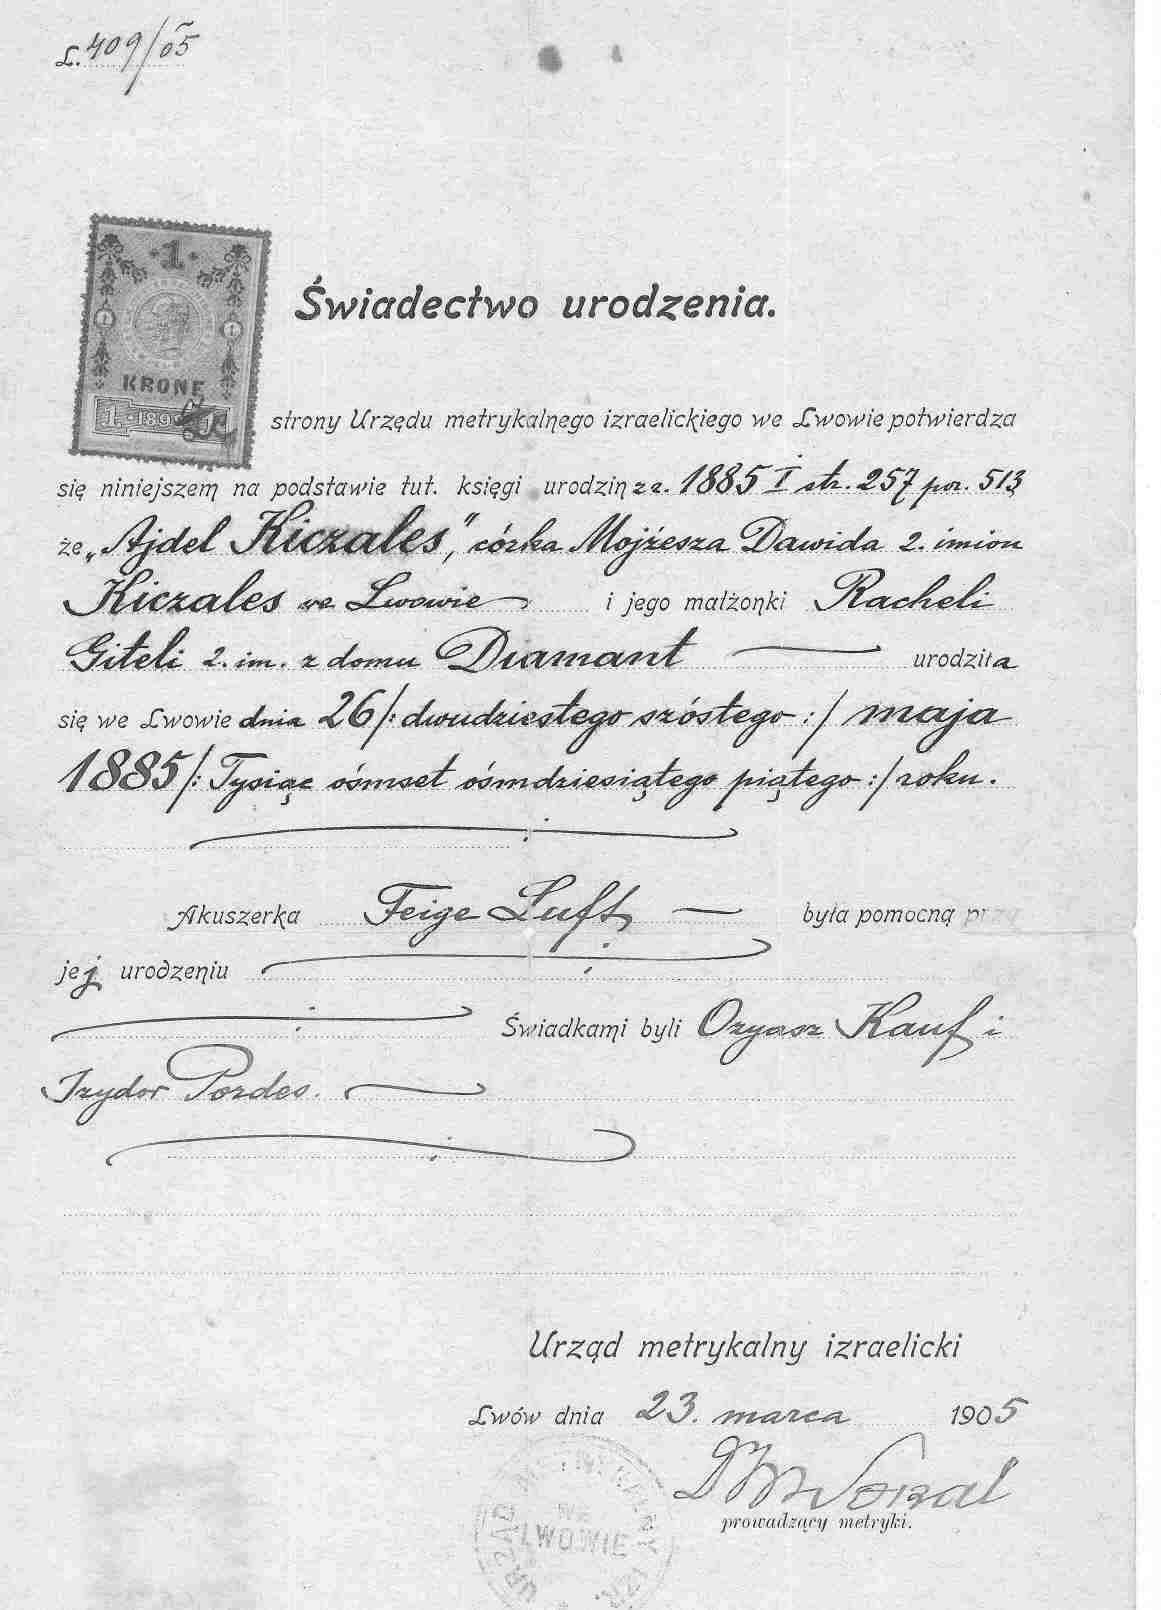 L. 409/05
1
1 1
KRONE
1 · 1898 · 1
Świadectwo urodzenia.
strony Urzędu metrykalnego izraelickiego we Lwowie potwierdza
się niniejszem na podstawie tut. księgi urodzin za. 1885 I str. 257 por. 513
że „Ajdel Kiczales," córka Mojżesza Dawida 2. imion
Kiczales we Lwowie i jego małżonki Racheli
Giteli 2. im. z domu Diamant urodziła
się we Lwowie dnia 26/: dwudziestego szóstego :/ maja
1885/: Tysiąc ośmset ośmdziesiątego piątego :/ roku.
Akuszerka Feige Luft była pomocną przy
jej urodzeniu
Świadkami byli Ozyasz Kauf i
Izydor Pordes.
Urząd metrykalny izraelicki
Lwów dnia 23. marca 1905
prowadzący metryki.
URZĄD METRYKALNY IZR.
WE
LWOWIE